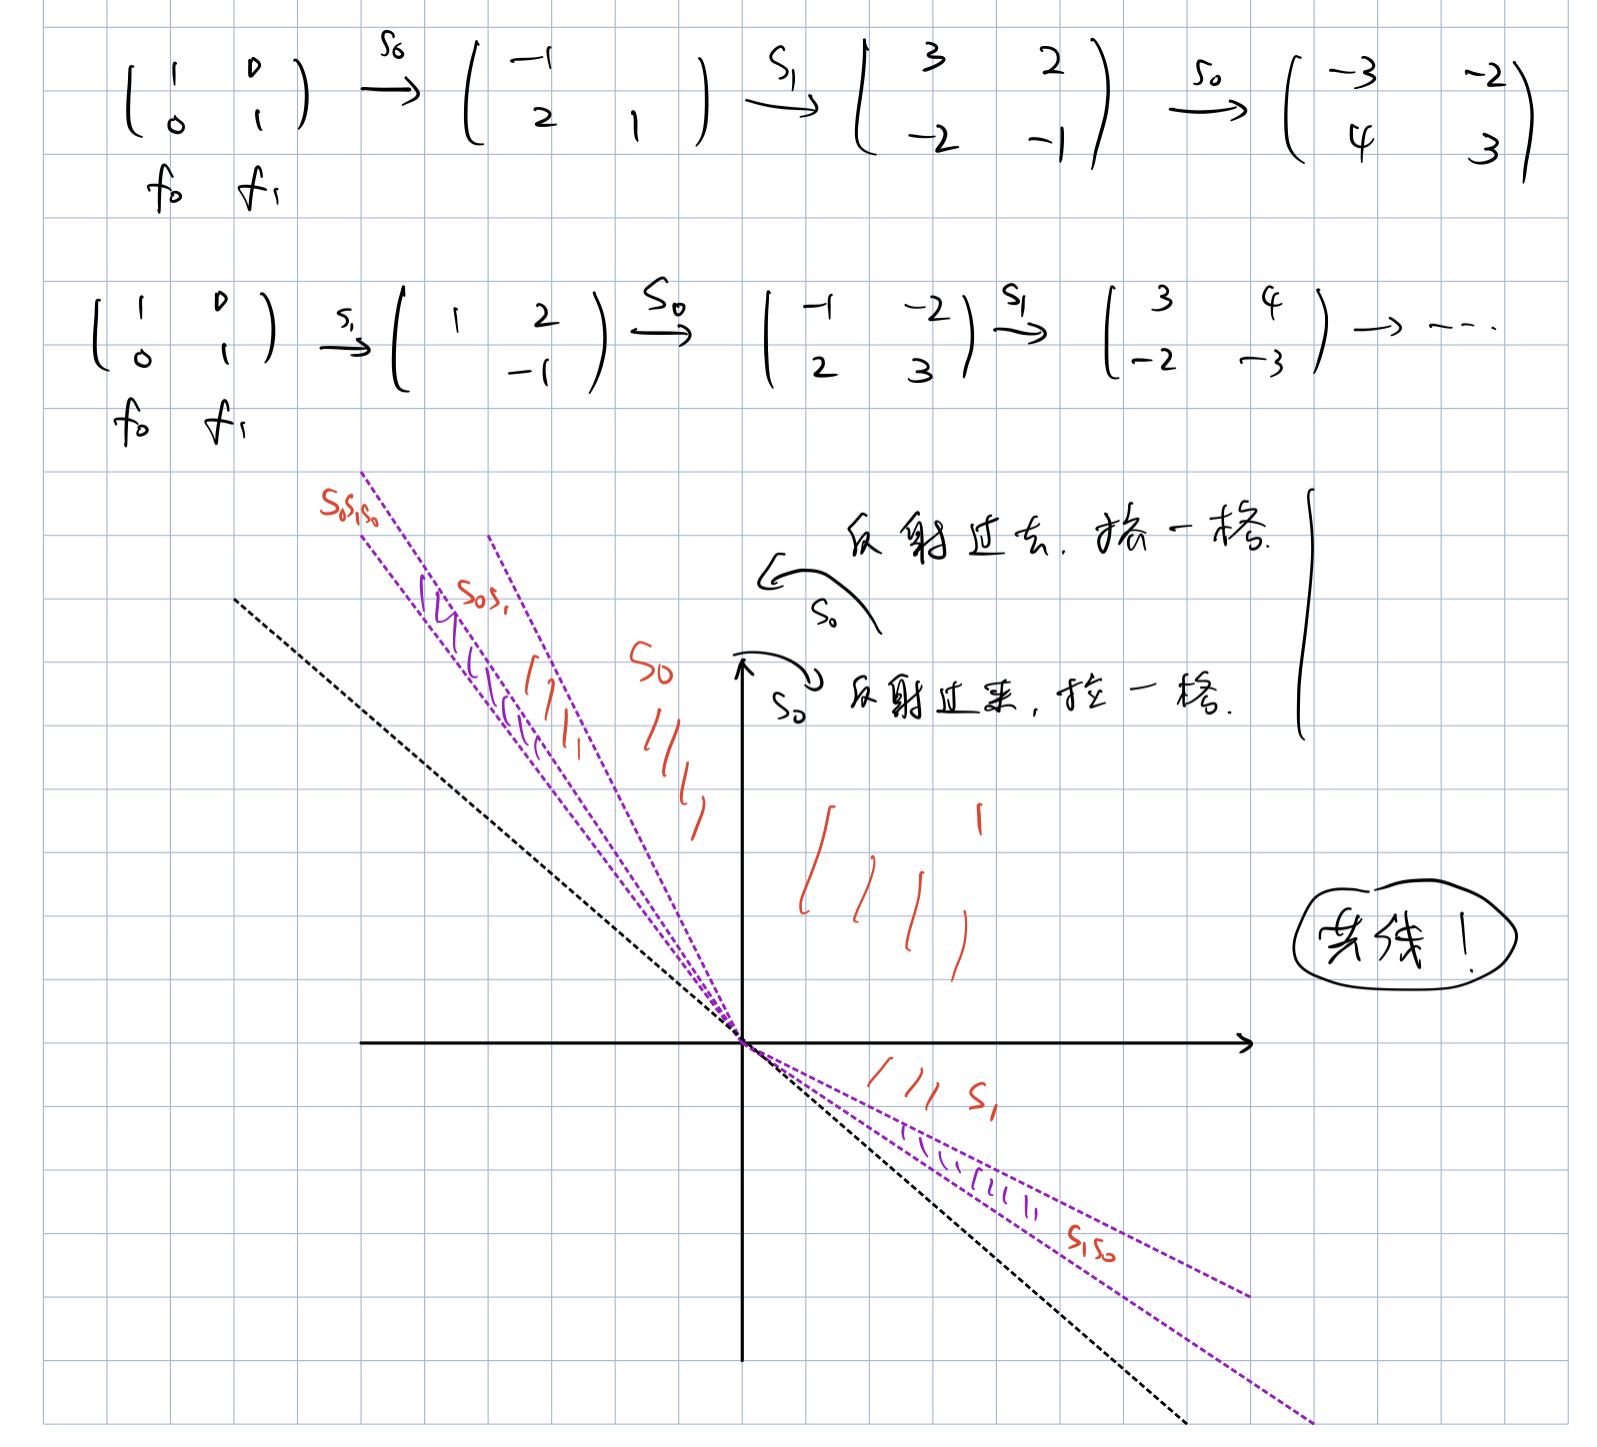 ( 1 0 ; 0 1 ) →^{S₀} ( -1 ; 2 1 ) →^{S₁} ( 3 2 ; -2 -1 ) →^{S₀} ( -3 -2 ; 4 3 )
f₀ f₁
( 1 0 ; 0 1 ) →^{S₁} ( 1 2 ; -1 ) →^{S₀} ( -1 -2 ; 2 3 ) →^{S₁} ( 3 4 ; -2 -3 ) → ----
f₀ f₁
S₀S₁S₀
反射过去. 一格.
S₀S₁
S₀
S₀
S₀ 反射过来, 一格.
1
共线!
S₁
S₁S₀